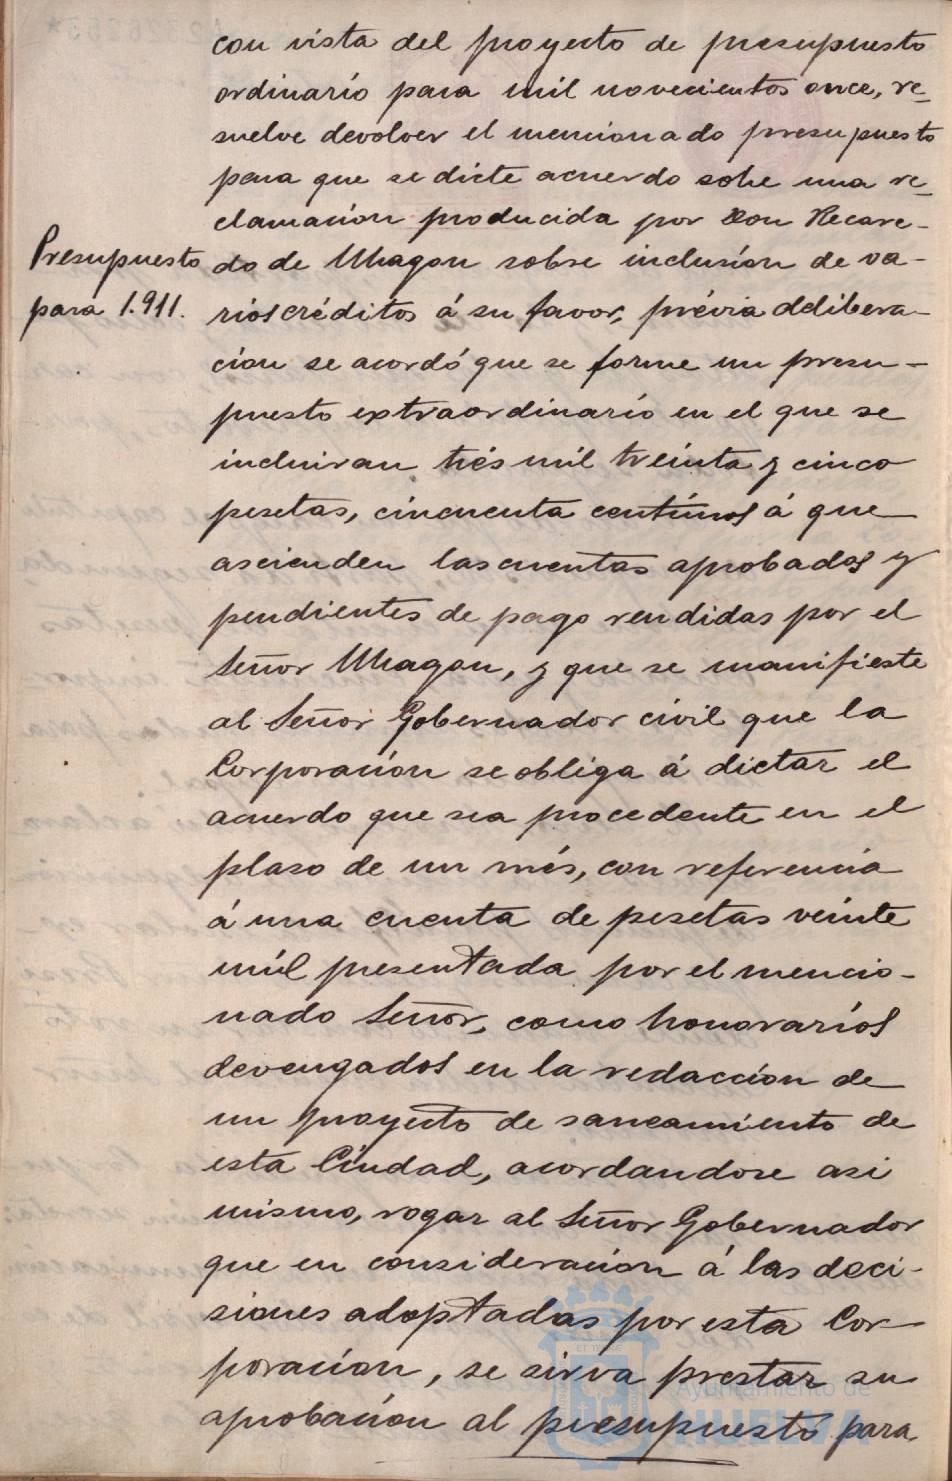 con vista del proyecto de presupuesto
ordinario para mil novecientos once, re-
suelve devolver el mencionado presupuesto
para que se dicte acuerdo sobe una re-
clamación producida por Don Recare-
Presupuesto
para 1.911.
do de Uhagon sobre inclusión de va-
rios créditos á su favor, prévia delibera-
ción se acordó que se forme un presu-
puesto extraordinario en el que se
incluiran trés mil treinta y cinco
pesetas, cincuenta centimos á que
ascienden las cuentas aprobadas y
pendientes de pago rendidas por el
Señor Uhagon, y que se manifieste
al Señor Gobernador civil que la
Corporación se obliga á dictar el
acuerdo que sea procedente en el
plaso de un més, con referencia
á una cuenta de pesetas veinte
mil presentada por el mencio-
nado Señor, como honorarios
devengados en la redacción de
un proyecto de saneamiento de
esta Ciudad, acordandose asi
mismo, rogar al Señor Gobernador
que en consideración á las deci-
siones adoptadas por esta Cor-
poración, se sirva prestar su
aprobación al presupuesto para
Ayuntamiento de
HUELVA